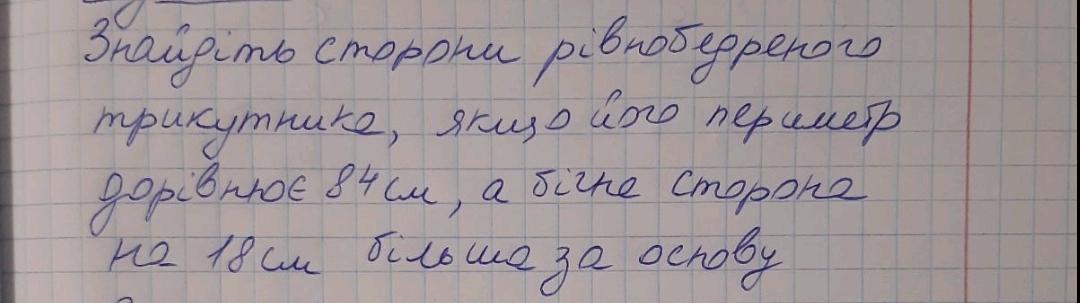 Знайдіть сторони рівнобедреного
трикутника, якщо його периметр
дорівнює 84 см, а бічна сторона
на 18 см більша за основу